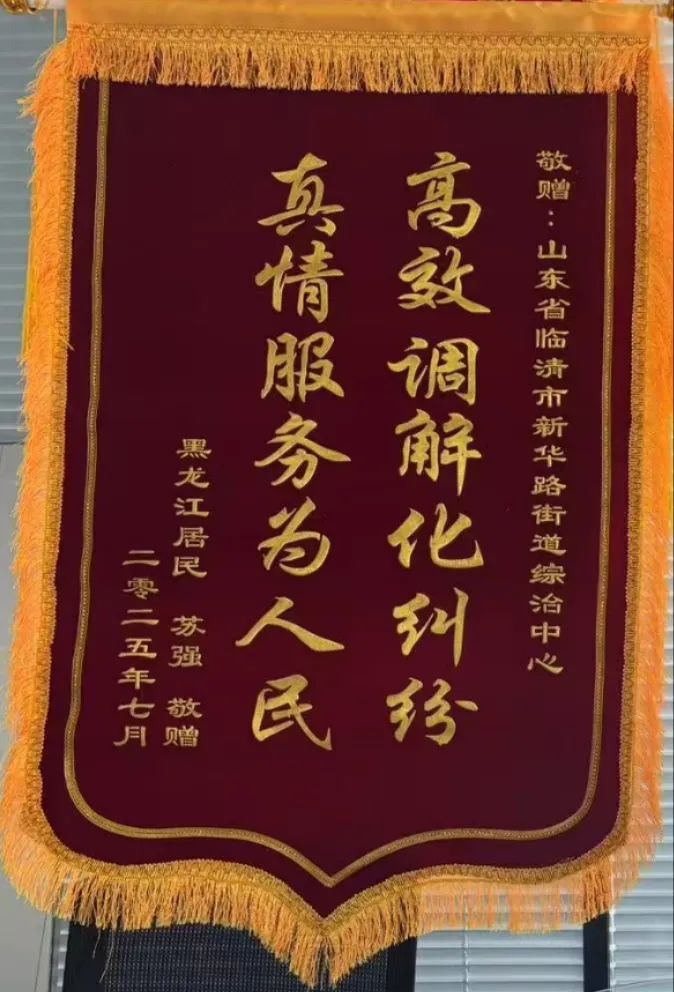 敬赠：山东省临清市新华路街道综治中心
高效调解化纠纷
真情服务为人民
黑龙江居民 苏强 敬赠
二零二五年七月